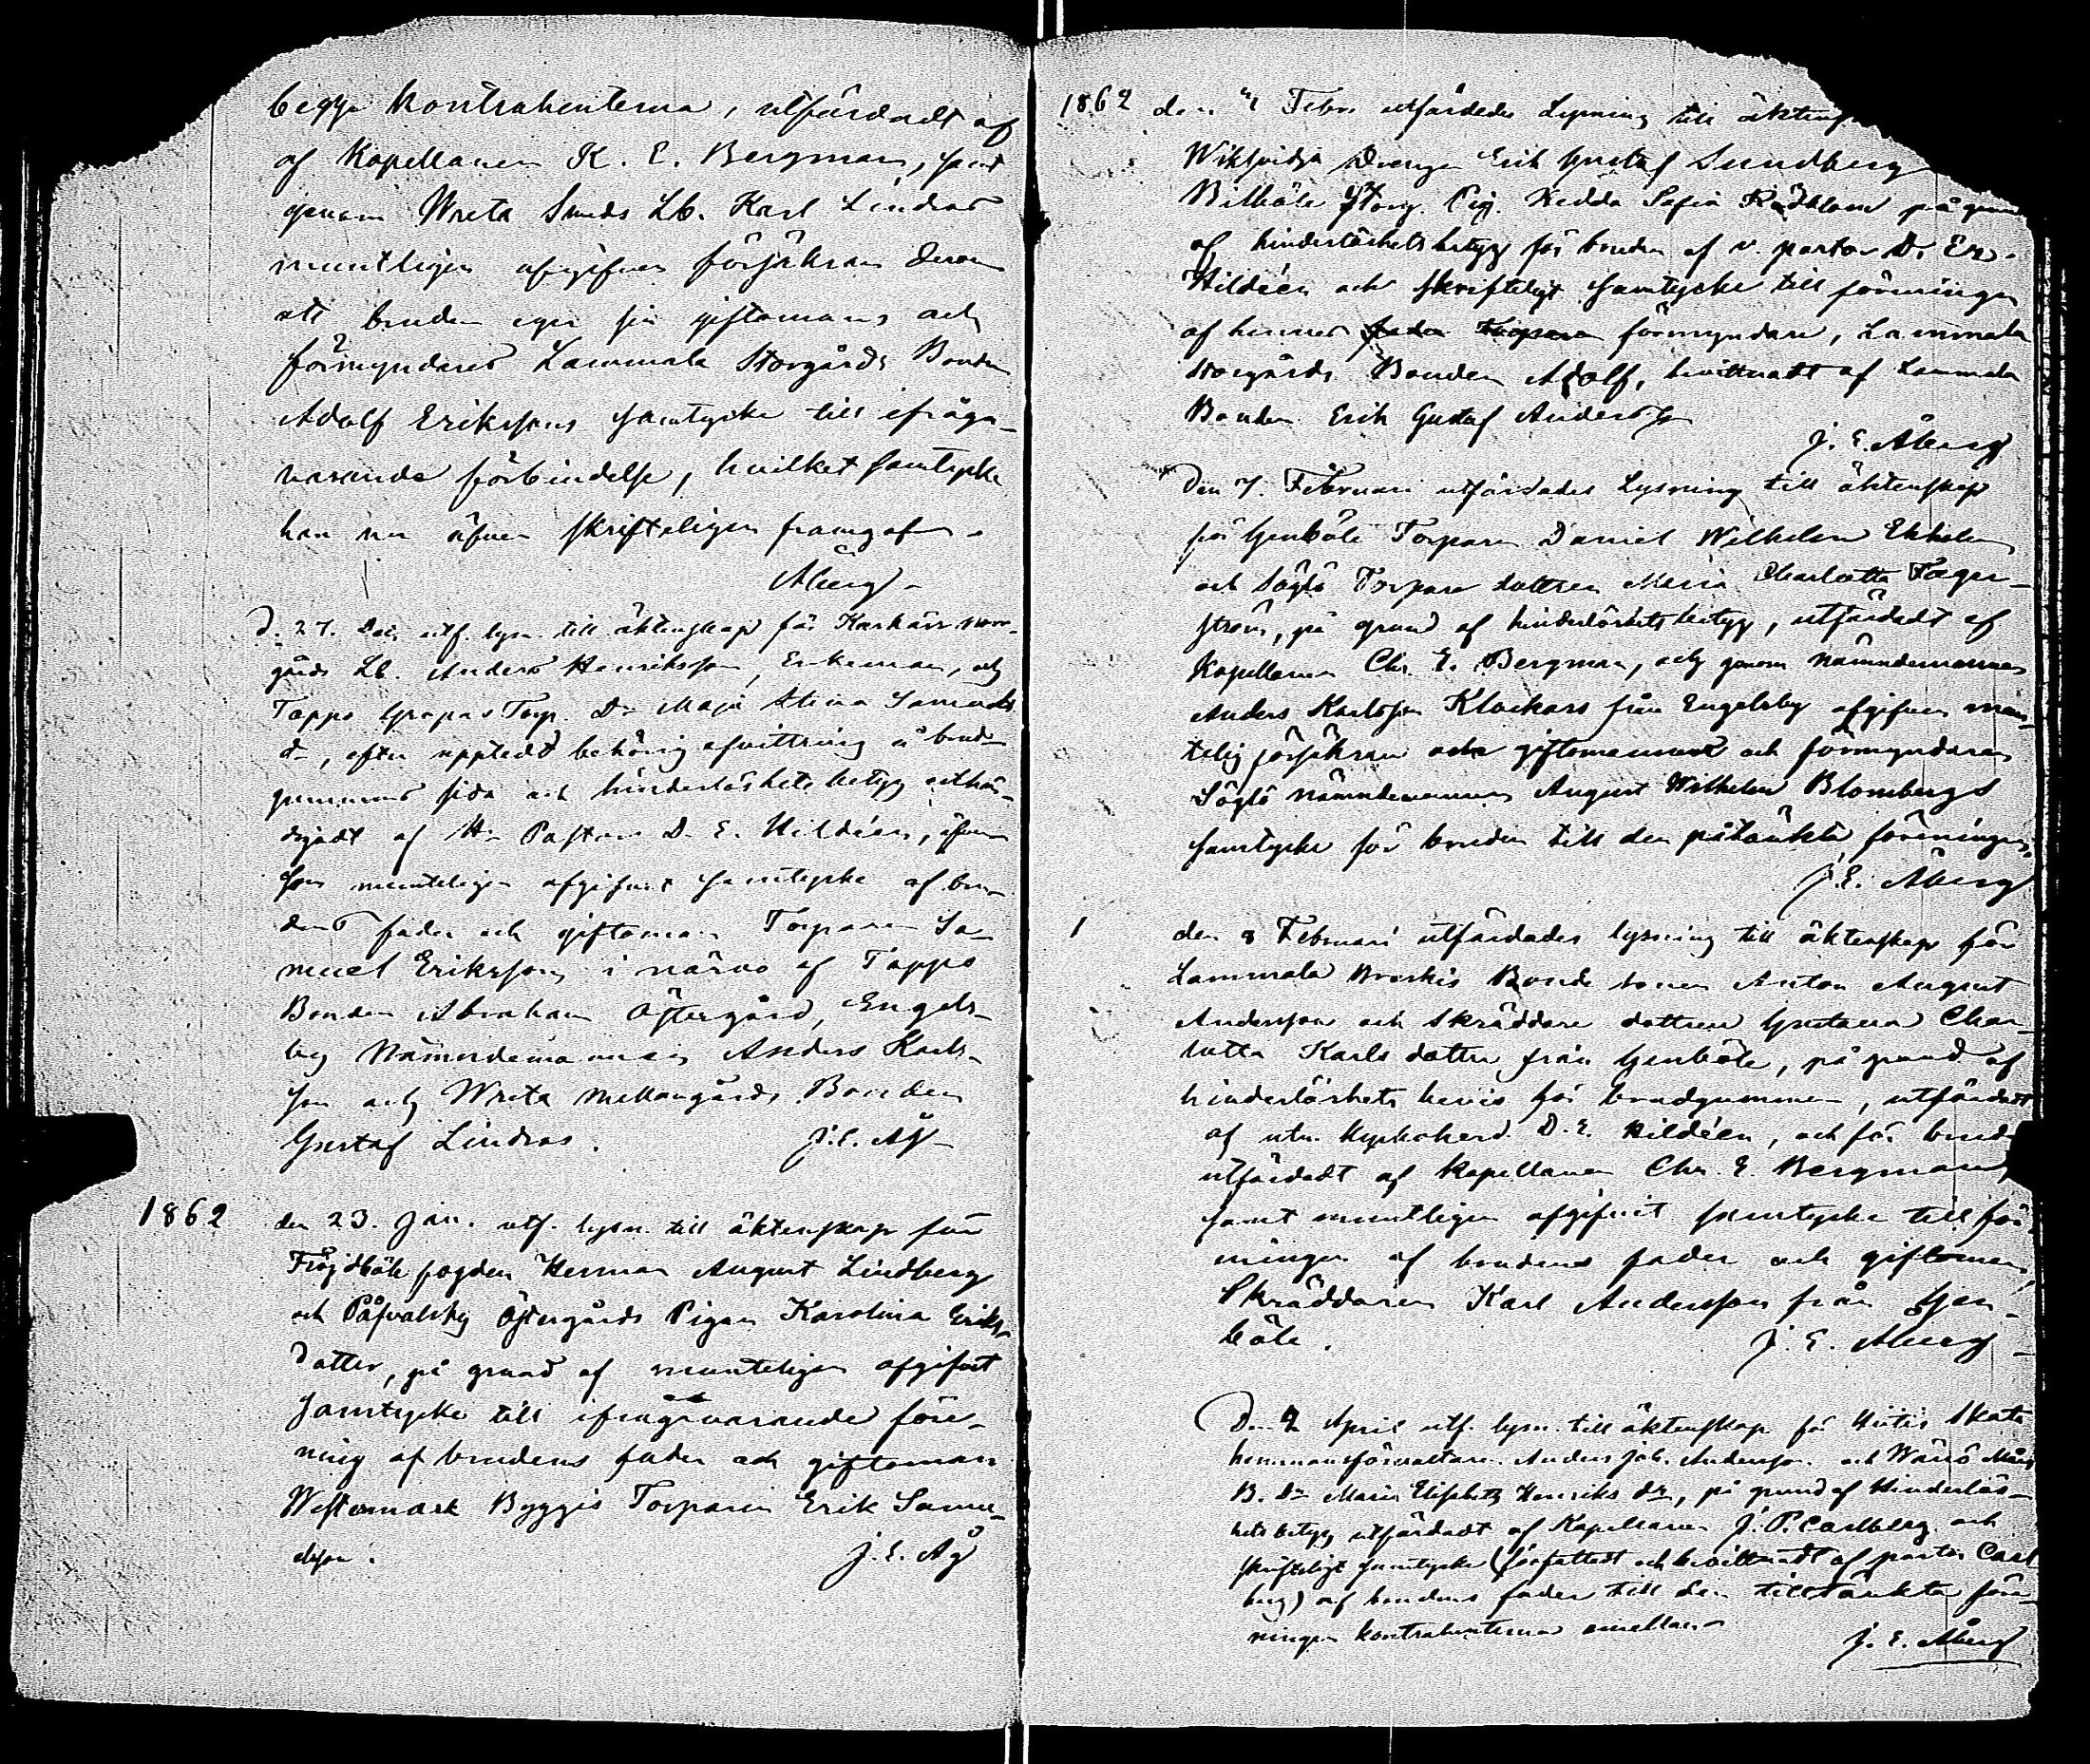 begge kontrahenterna, utfärdadt af
af Kapellanen K. E. Bergman, samt
genom Wreta Smeds Lb. Karl Lindros
muntligen afgifven försäkran derom
att bruden eger sin giftomans och
förmyndares Lammala Storgårds Bonden
Adolf Erikssons samtycke till ifråga-
varande förbindelse, hvilket samtycke
han nu äfven skrifteligen framgifvit.
Åberg
d. 27. Dec. utf. lysn. till äktenskap för Kärkärr norr-
gårds Lb. Anders Henriksson Enkeman, och
Tappo Grapas Torp. Dr Maja Stina Samuels
dr, efter uppteedt behörig afvittring å brud-
gummens sida och hinderlöshets betyg utfär-
digadt af Hr Pastorn D. E. Hildéen, äfven
som munteligen afgifvit samtycke af bru-
dens fader och giftoman Torparen Sa-
muel Eriksson, i närvo af Tappo
Bonden Abraham Östergård, Engels-
by Nämndemannen Anders Karls-
son och Wreta Mellangårds Bonden
Gustaf Lindros. J. E. Åg
1862 den 23. Jan. utf. lysn. till äktenskap för
Fröjdböle fogden Herman August Lindberg
och Påfvalsby Östergårds Pigan Karolina Eriks-
dotter, på grund af munteligen afgifvet
samtycke till ifrågavarande före-
ning af brudens fader och giftoman
Westermark Byggis Torparen Erik Samu-
elsson. J. E. Åg
1862 den 4 Febr. utfärdades Lysning till äktensk
Drengen Erik Gustaf Sundberg
Bilböle Pig. Hedda Sofia på grund
af hinderlöshetsbetyg för bruden af v. pastor D. Em.
Hildéen och skrifteligt samtycke till föreningen
af hennes förmyndare, Lammala
Storgårds Bonden Adolf, bevittnadt af Lammala
Bonden Erik Gustaf Andersson
J. E. Åberg
Den 7. Februari utfärdades Lysning till äktenskap
för Genböle Torparen Daniel Wilhelm Ekholm
och Söglö Torpare dottren Maria Charlotta Fager-
ström, på grund af hinderlöshetsbetyg, utfärdadt af
Kapellanen Chr. E. Bergman, och genom nämndemannen
Anders Karlsson Klockars från Engelsby afgifven mun-
telig försäkran om giftomannens och förmyndaren
Söglö nämndemannen August Wilhelm Blombergs
samtycke för bruden till den påtänkta föreningen.
J. E. Åberg
den 8 Februari utfärdades lysning till äktenskap för
Lammala Broskis Bonde sonen Anton August
Andersson och Skräddare dottren Gustava Char-
lotta Karls dotter från Genböle, på grund af
hinderlöshets bevis för brudgummen, utfärdadt
af utn. kyrkoherd. D. E. Hildéen, och för bruden
utfärdadt af kapellanen Chr. E. Bergman,
samt muntligen afgifvit samtycke till före-
ningen af brudens fader och giftoman,
Skräddaren Karl Andersson från Gen-
böle. J. E. Åberg
Den 2 April utf. lysn. till äktenskap för Hitis Skatte
hemmansförvaltaren Anders Joh. Andersson och Wänö Måns
B. Dr Maria Elisabeth Henriks dr, på grund af Hinderlös-
hets betyg utfärdadt af Kapellanen J. P. Carlberg och
skrifteligt samtycke (författadt och bevittnadt af pastor Carl
berg) af brudens fader till den tilltänkta före-
ningen kontrahenterna emellan
J. E. Åberg